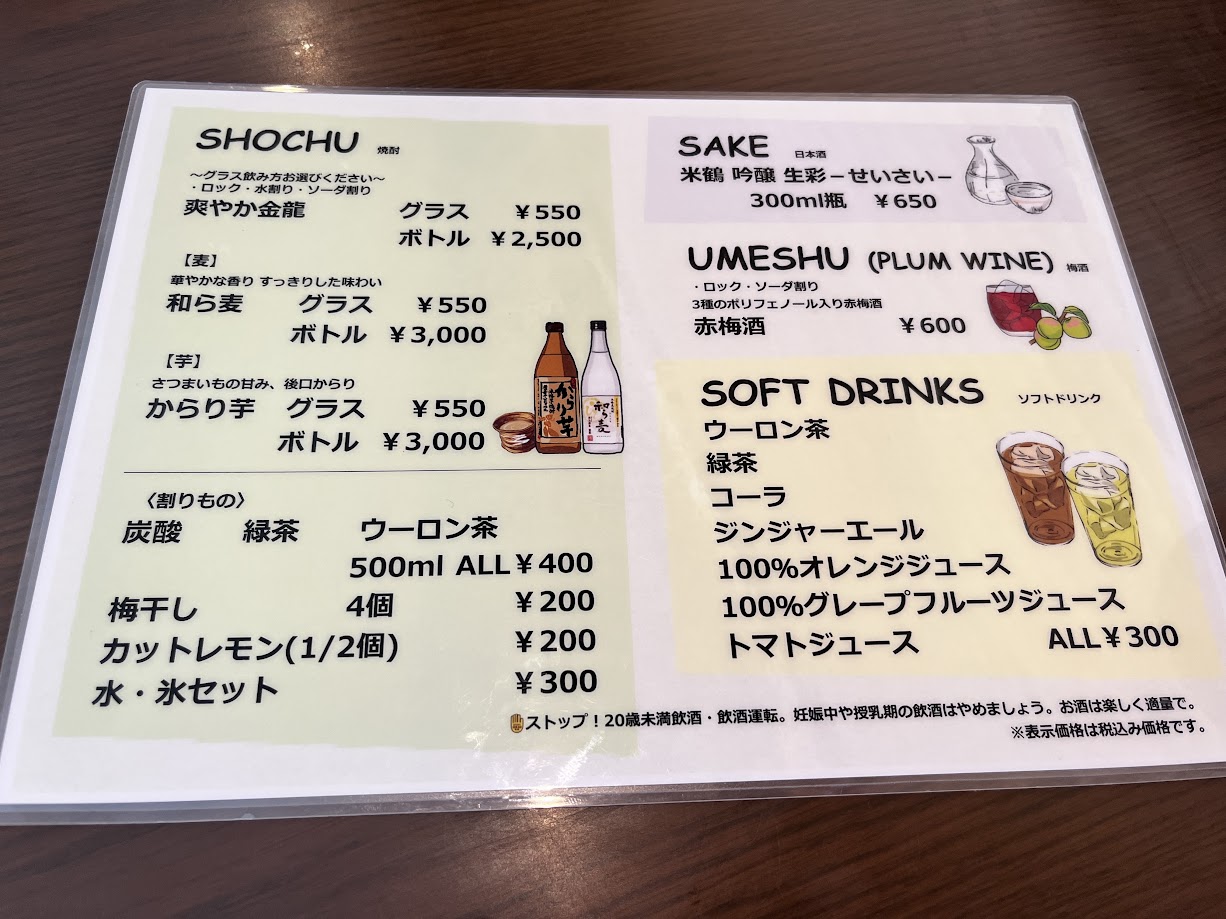 SHOCHU 焼酎
～グラス飲み方お選びください～
・ロック・水割り・ソーダ割り
爽やか金龍 グラス ￥550
ボトル ￥2,500
【麦】
華やかな香り すっきりした味わい
和ら麦 グラス ￥550
ボトル ￥3,000
【芋】
さつまいもの甘み、後口からり
からり芋 グラス ￥550
ボトル ￥3,000
からり芋
和ら麦
〈割りもの〉
炭酸 緑茶 ウーロン茶
500ml ALL￥400
梅干し 4個 ￥200
カットレモン(1/2個) ￥200
水・氷セット ￥300
SAKE 日本酒
米鶴 吟醸 生彩－せいさい－
300ml瓶 ￥650
UMESHU (PLUM WINE) 梅酒
・ロック・ソーダ割り
3種のポリフェノール入り赤梅酒
赤梅酒 ￥600
SOFT DRINKS ソフトドリンク
ウーロン茶
緑茶
コーラ
ジンジャーエール
100%オレンジジュース
100%グレープフルーツジュース
トマトジュース ALL￥300
ストップ！20歳未満飲酒・飲酒運転。妊娠中や授乳期の飲酒はやめましょう。お酒は楽しく適量で。
※表示価格は税込み価格です。